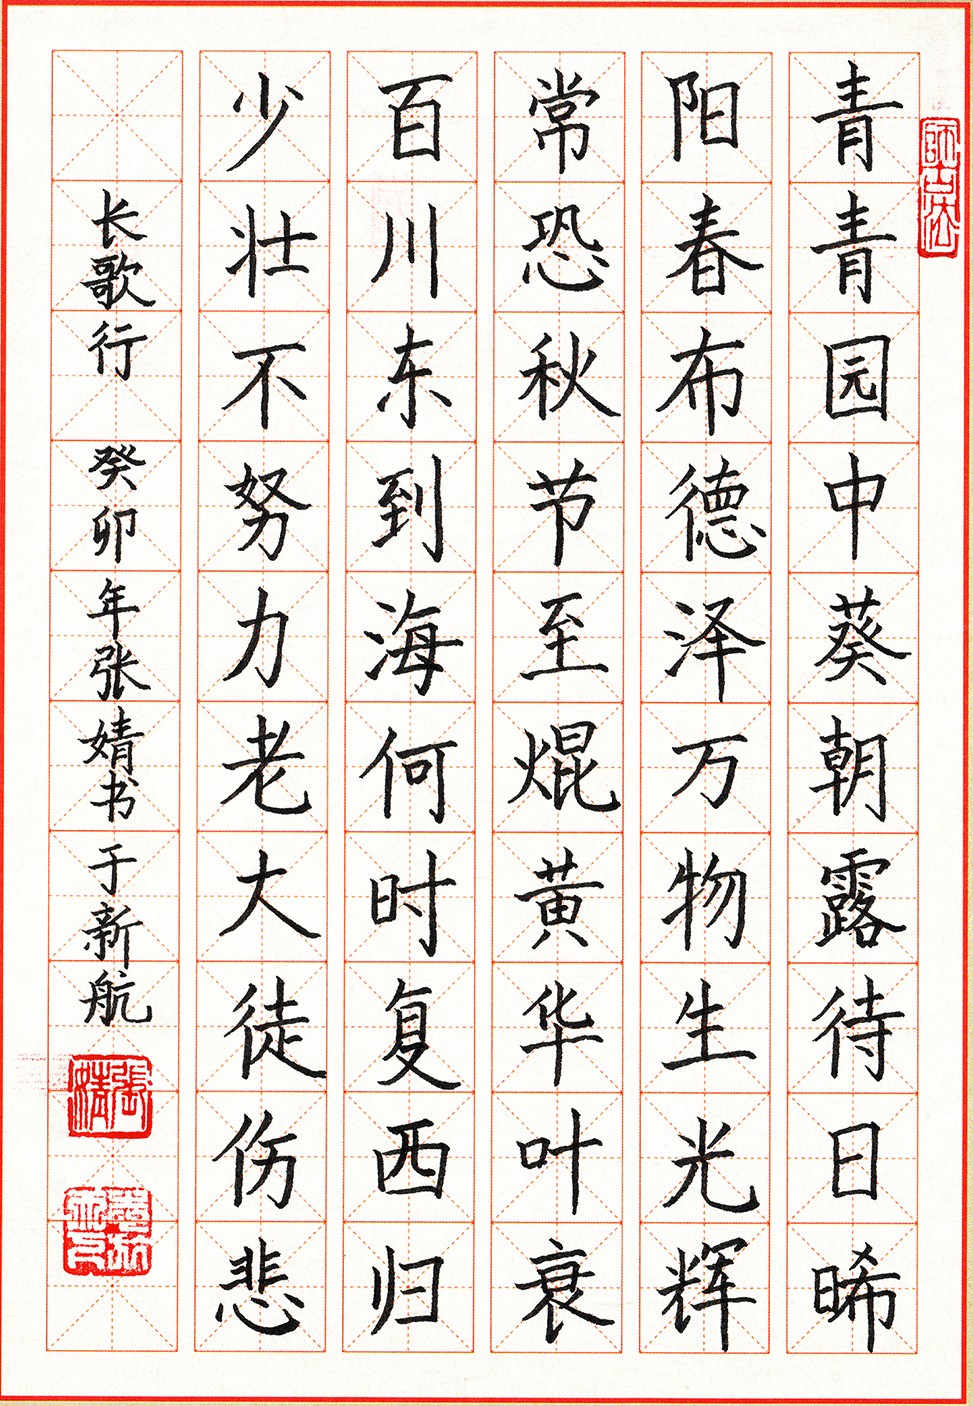 青青园中葵朝露待日晞
阳春布德泽万物生光辉
常恐秋节至焜黄华叶衰
百川东到海何时复西归
少壮不努力老大徒伤悲
长歌行 癸卯年张婧书于新航
張婧